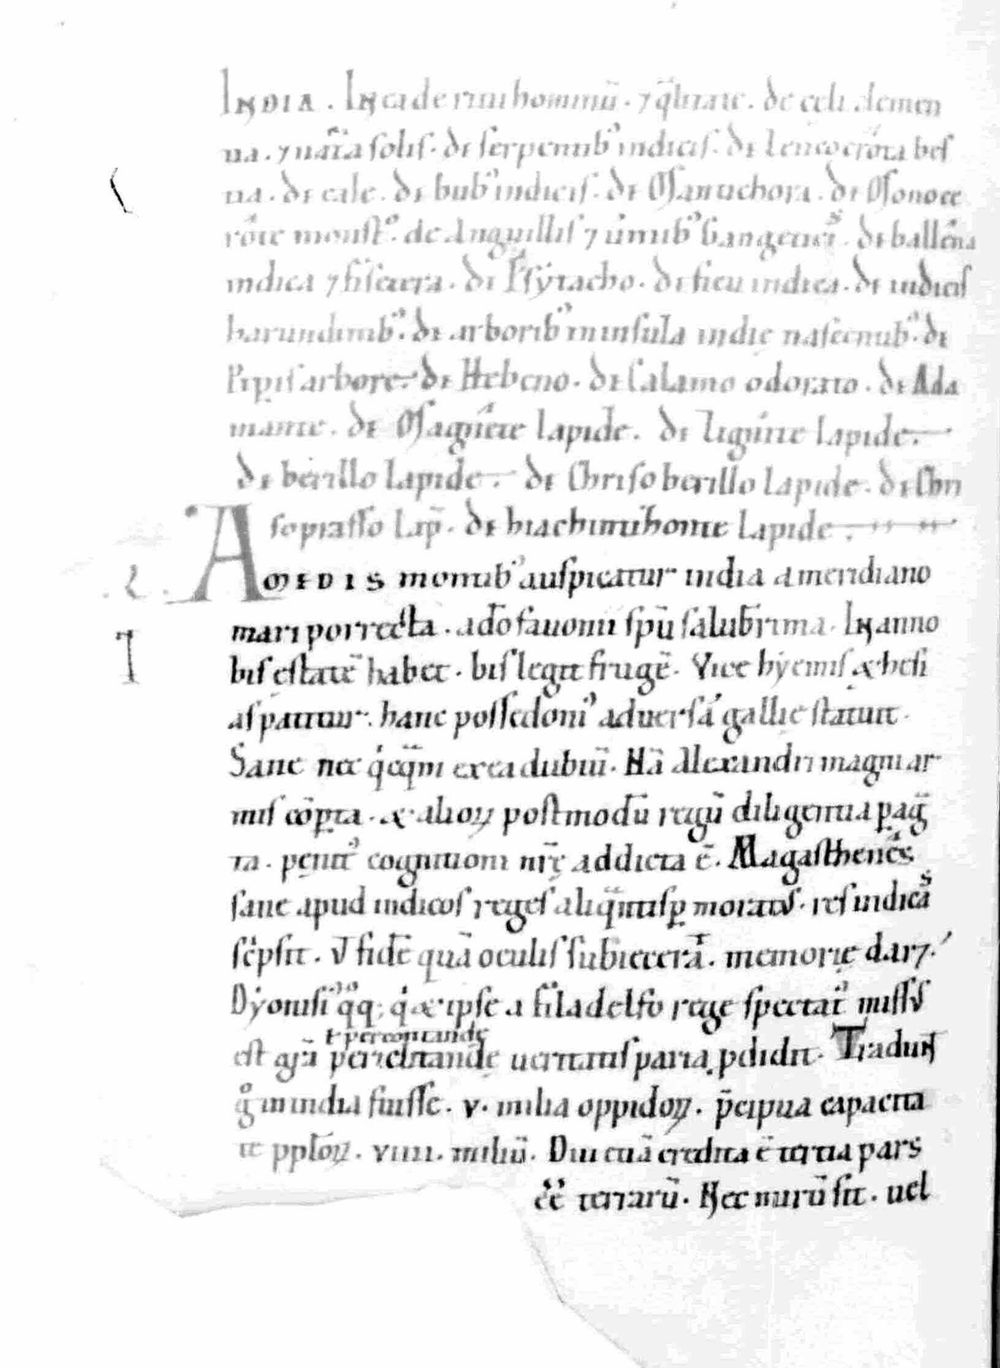 INDIA. In ea de ritu hominū. ⁊ q̄litate. de celi clemen
tia. ⁊ nat̄a solis. de serpentib᷒ indicis. de Leucocrota bes
tia. de eale. de bub᷒ indicis. de Mantichora. de Monoce
rote monst᷒. de Anguillis ⁊ u̇mib᷒ Gangeticis. de ballena
indica ⁊ fiseterra. de Psytacho. de ficu indica. de indicis
harundinib᷒. de arborib᷒ in insula indie nascentib᷒. de
Piperis arbore. de Hebeno. de Calamo odorato. de Ada
mante. de Magnete lapide. de Ligurie lapide.
de berillo lapide. de Chrisoberillo lapide. de Chri
soprasso lap̄. de hiachintizonte lapide.
A MEDIS montib᷒ auspicatur india a meridiano
mari porrecta. ad̄o fauonii sp̄u saluberrima. In anno
bis estatē habet. bis legit frugē. Vice hyemis & hesi
as patitur. hanc possedoni᷒ aduersā gallie statuit.
Sane nec q̇cq̄m ex ea dubiū. Nā Alexandri magni ar
mis cōpta. & alioꝝ postmodū regū diligentia pag̃
ta. penit᷒ cognitioni nr̄ę addicta ē. Magasthenes
sane apud indicos reges aliq̄ntisꝑ moratus. res indicas
sc̓psit. ut fidē quā oculis subiecerat. memorię dar&.
Dyonisi᷒ q̊q; q̇ & ipse a filadelfo rege spectat᷒ missus
ł percontandę
est gr̄a periclitandę ueritatis paria ꝓdidit. Tradunt
g̊ in india fuisse. v. milia oppidoꝝ. p̄cipua capacita
te ppl̄oꝝ. viiii. miliū. Diu etiā credita ē tertia pars
ēē terrarū. Nec mirū sit. uel